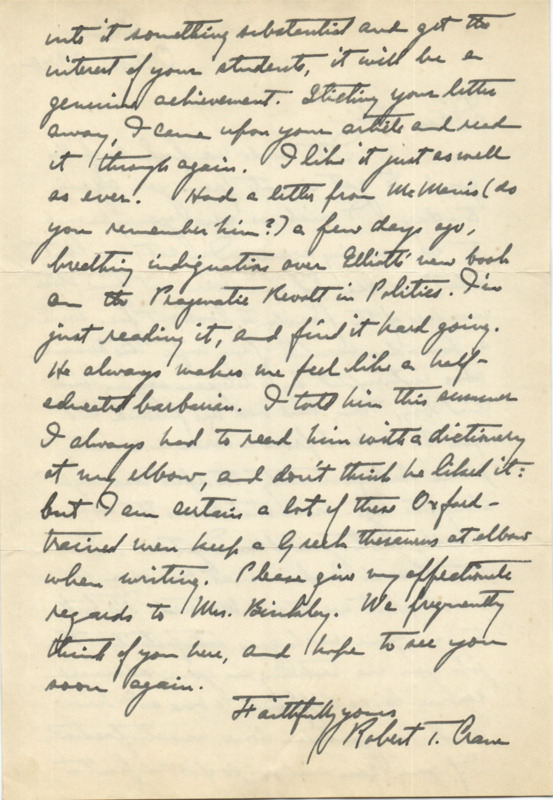 into it something substantial and get the
interest of your students, it will be a
genuine achievement. Sticking your letter
away, I came upon your article and read
it through again. I like it just as well
as ever. Had a letter from McManis (do
you remember him?) a few days ago,
breathing indignation over Elliott's new book
on the Pragmatic Revolt in Politics. I'm
just reading it, and find it hard going.
He always makes me feel like a half-
educated barbarian. I told him this summer
I always had to read him with a dictionary
at my elbow, and don't think he liked it:
but I am certain a lot of these Oxford-
trained men keep a Greek thesaurus at elbow
when writing. Please give my affectionate
regards to Mrs. Binkley. We frequently
think of you here, and hope to see you
soon again.
Faithfully yours
Robert T. Crane